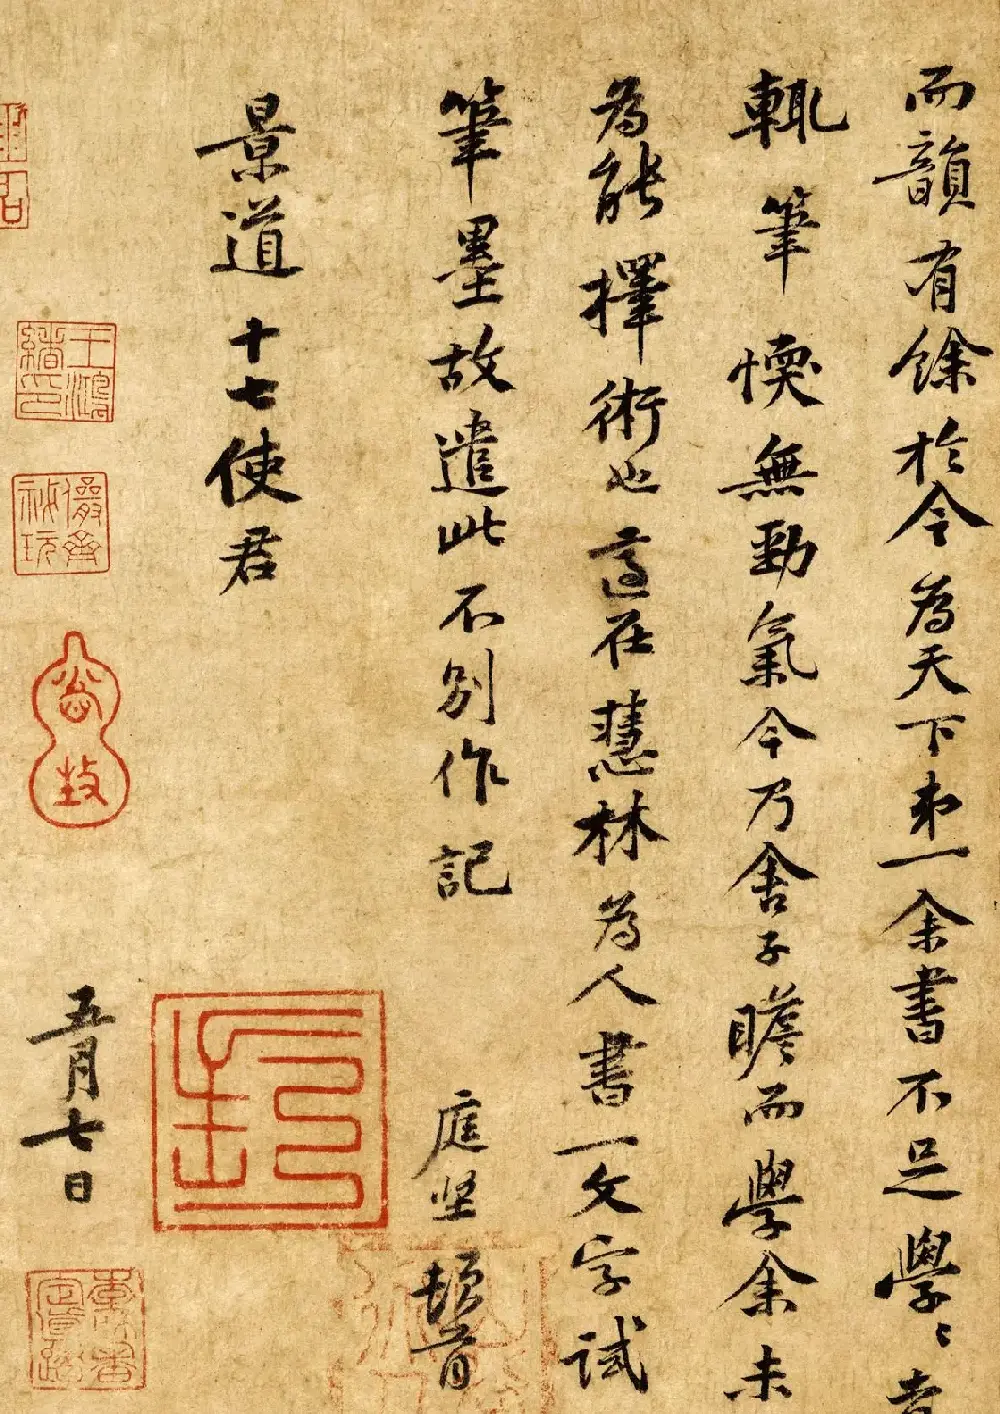 而韻有餘於今為天下第一余書不足學學者
輒筆愞無勁氣今乃舍子瞻而學余未
為能擇術也適在慧林為人書一文字試
筆墨故遣此不別作記
庭堅頓首
景道十七使君
五月七日
王鴻緒印
儼齋秘玩